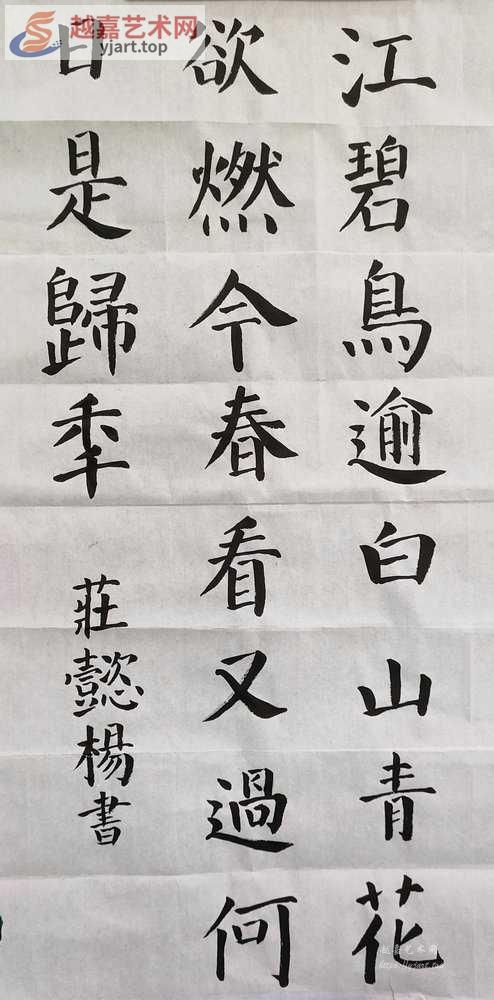 江碧鳥逾白山青花
欲燃今春看又過何
日是歸秊
莊懿楊書
越嘉艺术网
yjart.top
越嘉艺术网
https://yjart.top